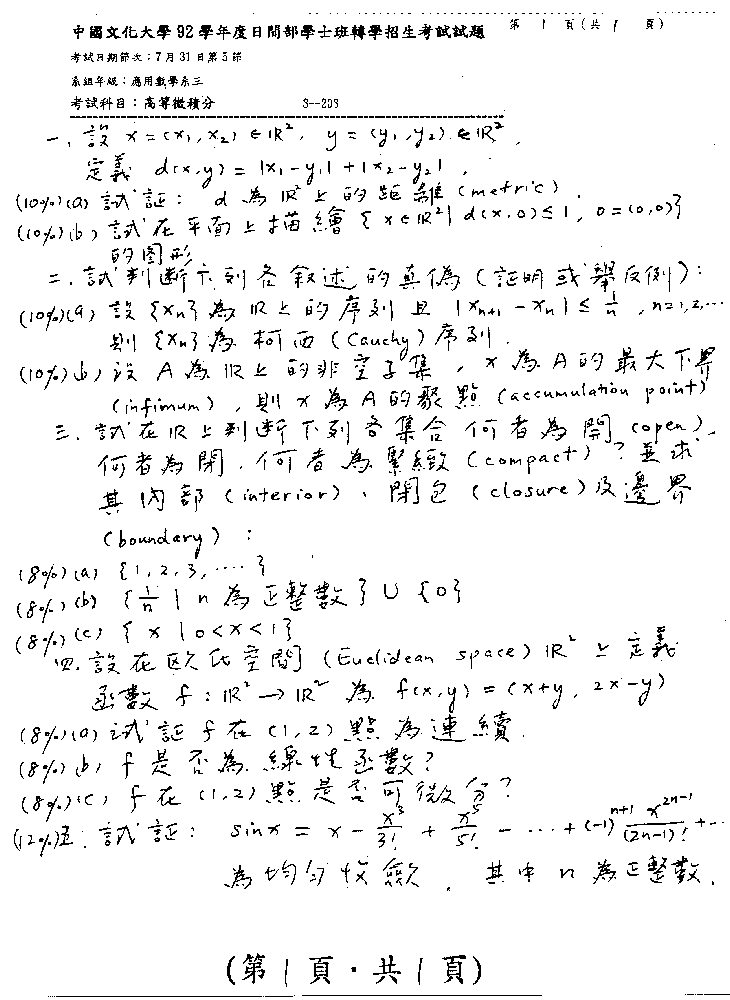 中國文化大學92學年度日間部學士班轉學招生考試試題 第 1 頁(共 1 頁)
考試日期節次：7月31日第5節
系組年級：應用數學系三
考試科目：高等微積分 3--203
一、設 x=(x₁,x₂)∈ℝ², y=(y₁,y₂)∈ℝ²,
定義 d(x,y)=|x₁-y₁|+|x₂-y₂|,
(10%)(a) 試証： d 為 ℝ² 上的距離(metric)
(10%)(b) 試在平面上描繪 {x∈ℝ²| d(x,0)≤1, 0=(0,0)}
的圖形
二、試判斷下列各敘述的真偽(証明或舉反例)：
(10%)(a) 設 {xₙ} 為 ℝ 上的序列且 |xₙ₊₁-xₙ|≤1/n, n=1,2,…
則 {xₙ} 為柯西(Cauchy)序列.
(10%)(b) 設 A 為 ℝ 上的非空子集, x 為 A 的最大下界
(infimum), 則 x 為 A 的聚點(accumulation point)
三、試在 ℝ 上判斷下列各集合何者為開(open)、
何者為閉、何者為緊緻(compact)？並求
其內部(interior)、閉包(closure)及邊界
(boundary)：
(8%)(a) {1,2,3,····}
(8%)(b) {1/n | n 為正整數} ∪ {0}
(8%)(c) {x | 0<x<1}
四、設在歐氏空間(Euclidean space) ℝ² 上定義
函數 f:ℝ²→ℝ² 為 f(x,y)=(x+y, 2x-y)
(8%)(a) 試証 f 在 (1,2) 點為連續.
(8%)(b) f 是否為線性函數？
(8%)(c) f 在 (1,2) 點是否可微分？
(12%)五、試証： sinx = x - x³/3! + x⁵/5! - ··· + (-1)ⁿ⁺¹ x²ⁿ⁻¹/(2n-1)! + ···
為均勻收斂, 其中 n 為正整數.
(第 1 頁．共 1 頁)